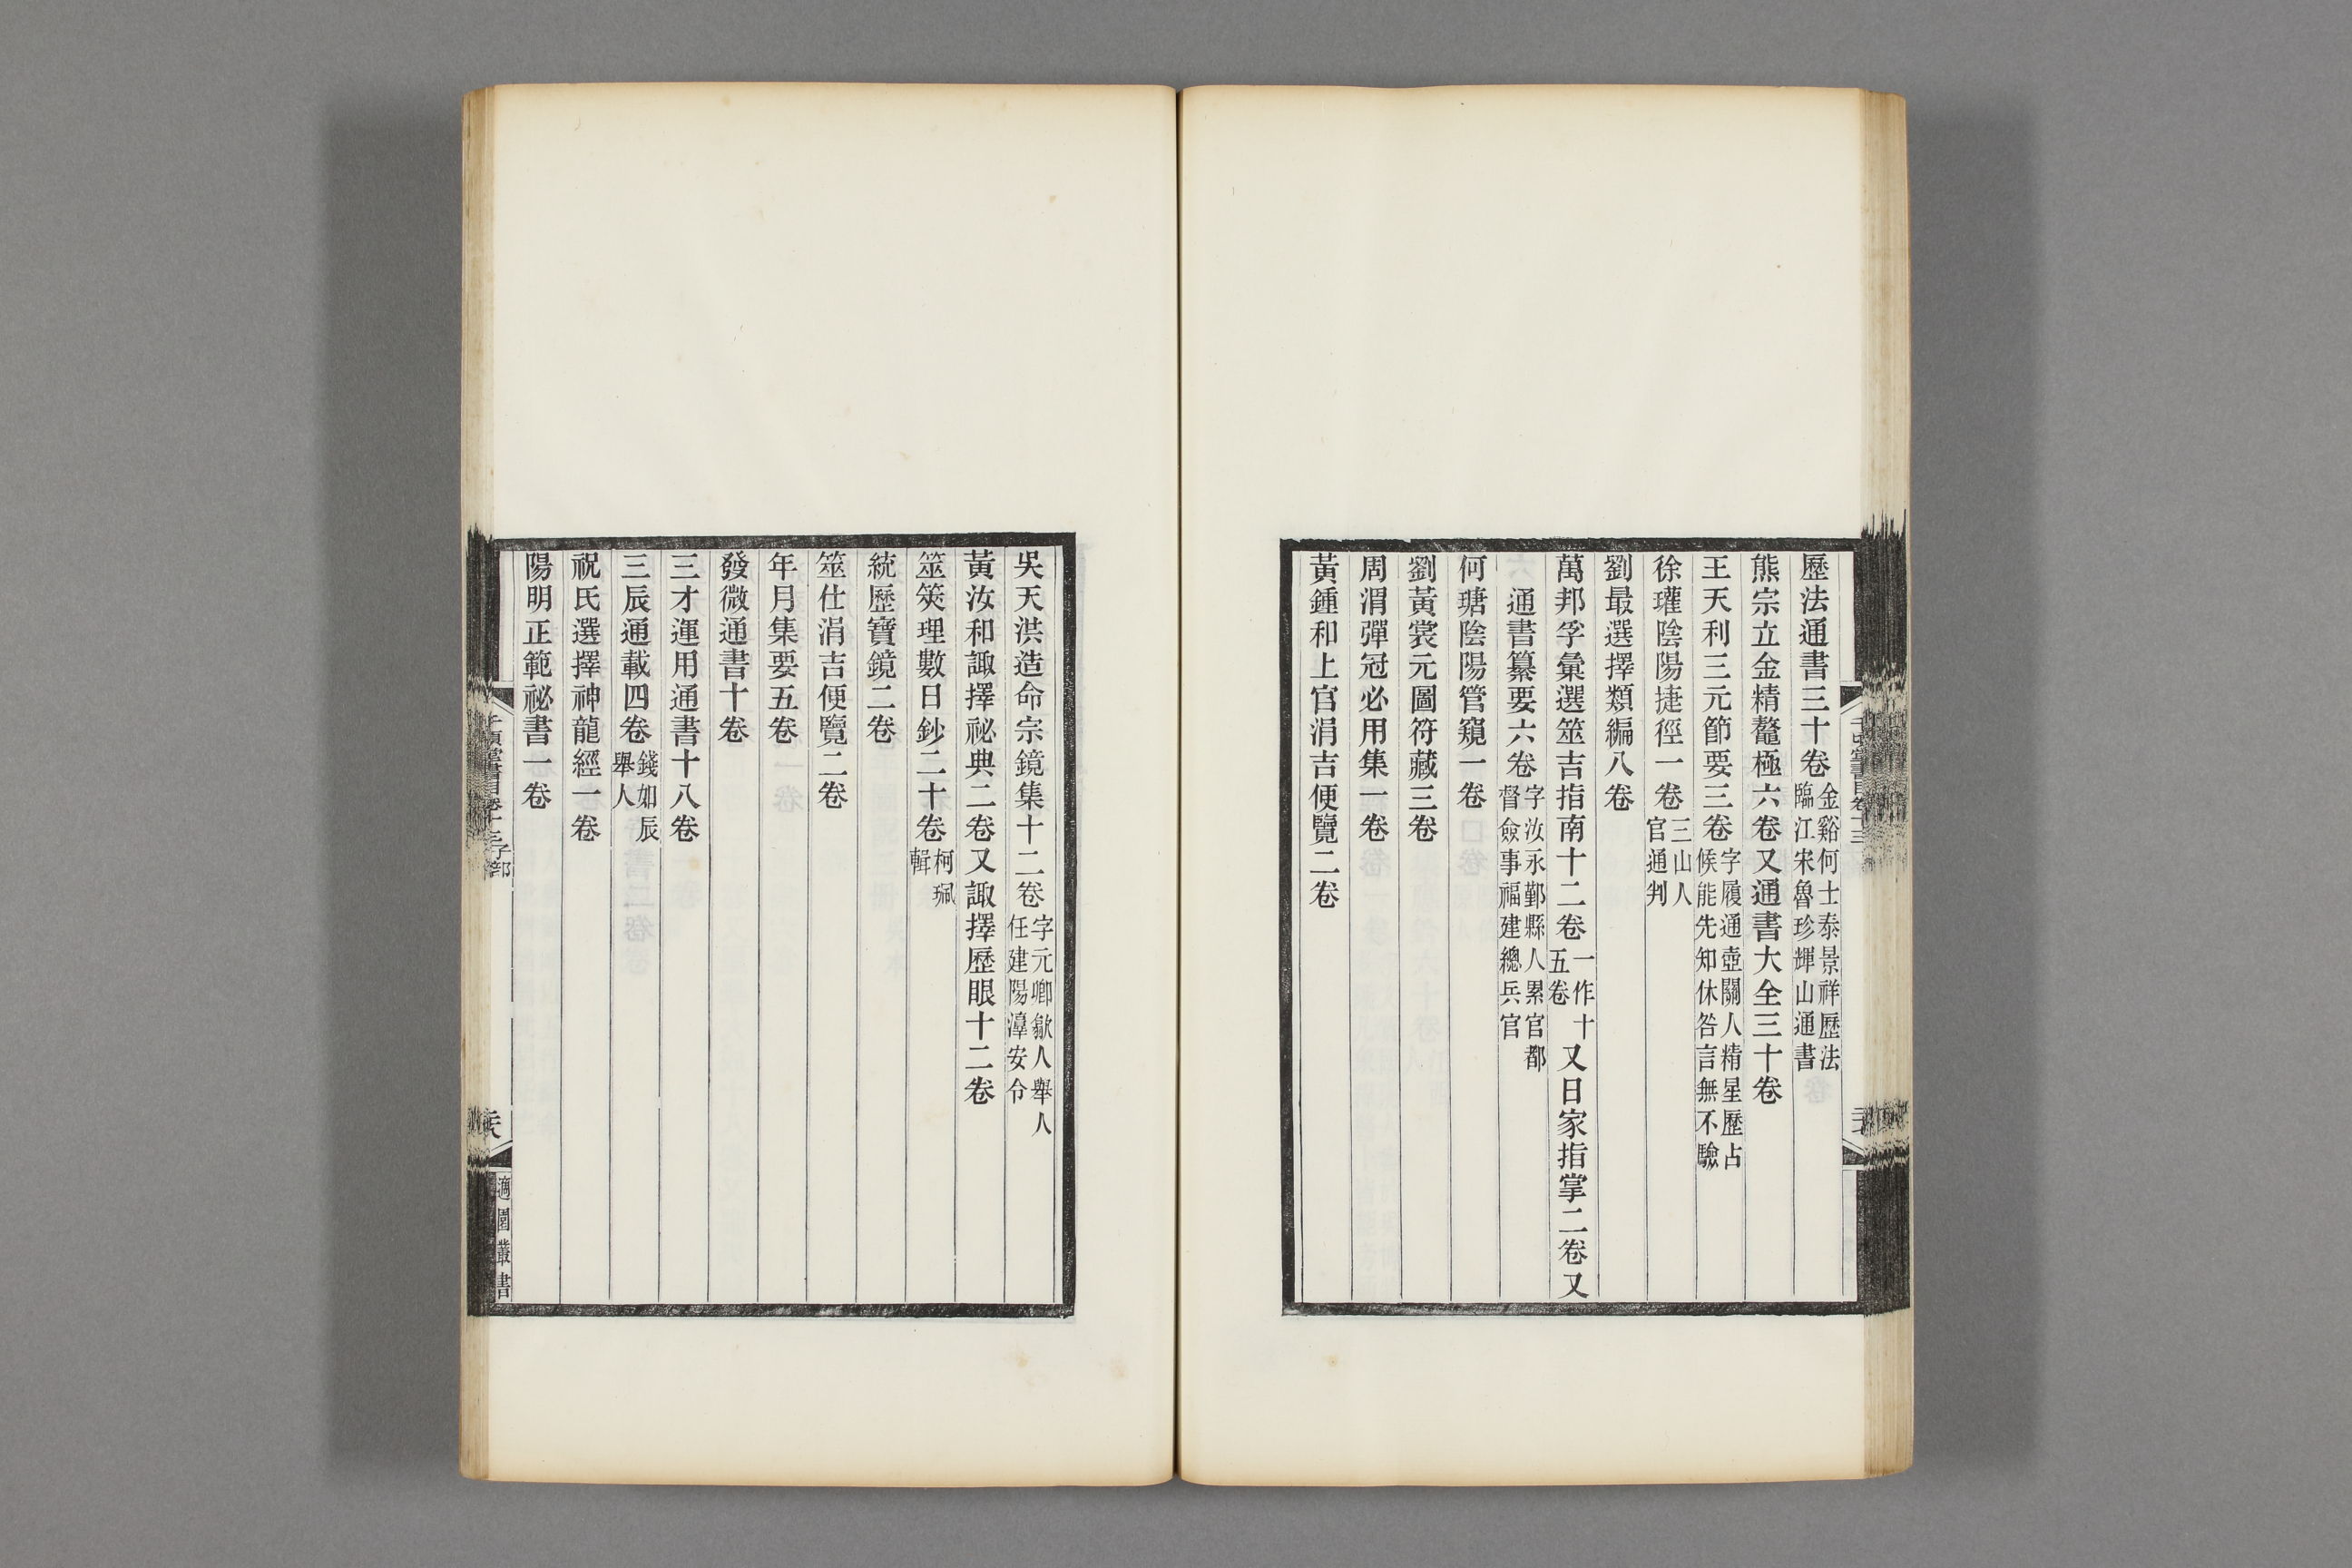 歷法通書三十卷金谿何士泰景祥歷法臨江宋魯珍輝山通書
熊宗立金精鼇極六卷又通書大全三十卷
王天利三元節要三卷字履通壺關人精星歷占候能先知休咎言無不驗
徐瓘陰陽捷徑一卷三山人官通判
劉最選擇類編八卷
萬邦孚彙選筮吉指南十二卷一作十五卷又日家指掌二卷又
通書纂要六卷字汝永鄞縣人累官都督僉事福建總兵官
何瑭陰陽管窺一卷
劉黃裳元圖符藏三卷
周渭彈冠必用集一卷
黃鍾和上官涓吉便覽二卷
吳天洪造命宗鏡集十二卷字元卿歙人舉人任建陽漳安令
黃汝和諏擇祕典二卷又諏擇歷眼十二卷
筮筴理數日鈔二十卷柯珮輯
統歷寶鏡二卷
筮仕涓吉便覽二卷
年月集要五卷
發微通書十卷
三才運用通書十八卷
三辰通載四卷錢如辰舉人
祝氏選擇神龍經一卷
陽明正範祕書一卷
千頃堂書目卷十三子部
适園叢書